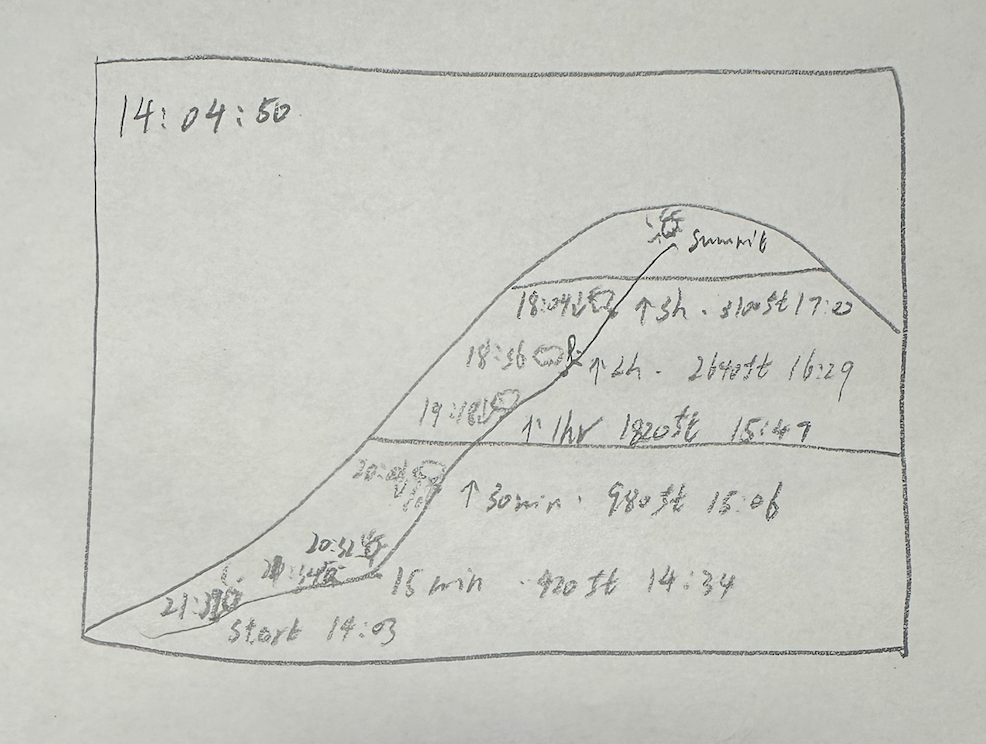 14:04:50
summit
18:04 ↑3h . 3100ft 17:22
18:36 ↑2h . 2640ft 16:29
19:18 ↑1hr 1820ft 15:49
↑30min . 980ft 15:06
20:32
15min . 420ft 14:34
start 14:03